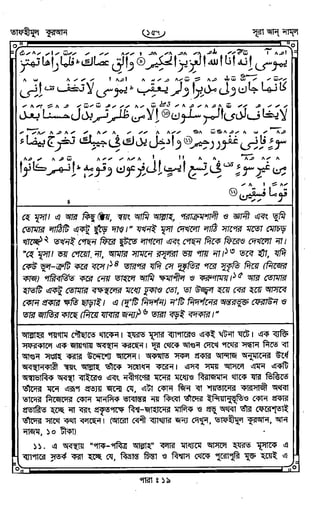 তাফহীমুল কুরআন
১৫৩
সূরা আন্ নামল
يموسى إنه أنا الله العزيز الحكيم ⑨ وألق عصاك فلما رآها تهتز
كأنها جان ولى مدبرا ولم يعقب يموسى لا تخف إني
لا يخاف لدي المرسلون ⑩ إلا من ظلم ثم بدل حسنا بعد
سوء فإني غفور رحيم ⑪ وأدخل يدك في جيبك تخرج بيضاء
من غير سوء في تسع آيات إلى فرعون وقومه إنهم كانوا
قوما فسقين ⑫
হে মূসা! এ আর কিছু নয়, স্বয়ং আমি আল্লাহ, পরাক্রমশালী ও জ্ঞানী এবং তুমি
তোমার লাঠিটি একটু ছুঁড়ে দাও।" যখনই মূসা দেখলো লাঠি সাপের মতো মোচড়
খাচ্ছে১২ তখনই পেছন ফিরে ছুটতে লাগলো এবং পেছন দিকে ফিরেও দেখলো না।
"হে মূসা! ভয় পেয়ো না, আমার সামনে রসূলরা ভয় পায় না।১৩ তবে হাঁ, যদি
কেউ ভুল-ত্রুটি করে বসে।১৪ তারপর যদি সে দুষ্কৃতির পরে সুকৃতি দিয়ে (নিজের
কাজ) পরিবর্তিত করে নেয় তাহলে আমি ক্ষমাশীল ও করুণাময়।১৫ আর তোমার
হাতটি একটু তোমার বক্ষস্থলের মধ্যে ঢুকাও তো, তা উজ্জ্বল হয়ে বের হয়ে আসবে
কোন প্রকার ক্ষতি ছাড়াই। এ (দু'টি নিদর্শন) ন'টি নিদর্শনের অন্তরভুক্ত ফেরাউন ও
তার জাতির কাছে (নিয়ে যাবার জন্য)১৬ তারা বড়ই বদকার।"
আল্লাহর পয়গাম পৌঁছাতে থাকেন। হযরত মূসার ব্যাপারেও একই ঘটনা ঘটে। এক ব্যক্তি
সফরকালে এক জায়গায় অবস্থান করছেন। দূর থেকে আগুন দেখে পথের সন্ধান নিতে বা
আগুন সংগ্রহ করার উদ্দেশ্যে আসেন। অকস্মাত সকল প্রকার আন্দাজ অনুমানের উর্ধে
অবস্থানকারী স্বয়ং আল্লাহ তাঁকে সম্বোধন করেন। এসব সময় আসলে এমন একটি
অস্বাভাবিক অবস্থা বাইরেও এবং নবীগণের মনের মধ্যেও বিরাজমান থাকে যার ভিত্তিতে
তাঁদের মনে এরূপ প্রত্যয় জন্মে যে, এটা কোন জিন বা শয়তানের কারসাজী অথবা
তাদের নিজেদের কোন মানসিক ভাবান্তর নয় কিংবা তাঁদের ইন্দ্রিয়ানুভূতিও কোন প্রকার
প্রতারিত হচ্ছে না বরং প্রকৃতপক্ষে বিশ্ব-জাহানের মালিক ও প্রভু অথবা তাঁর ফেরেশতাই
তাঁদের সাথে কথা বলছেন। (আরো বেশী ব্যাখ্যার জন্য দেখুন, তাফহীমুল কুরআন, আন
নাজম, ১০ টীকা)
১১. এ অবস্থায় "পাক-পবিত্র আল্লাহ" বলার মাধ্যমে আসলে হযরত মূসাকে এ
ব্যাপারে সতর্ক করা হচ্ছে যে, বিভ্রান্ত চিন্তা ও বিশ্বাস থেকে পুরোপুরি মুক্ত হয়েই এ
পারা : ১৯